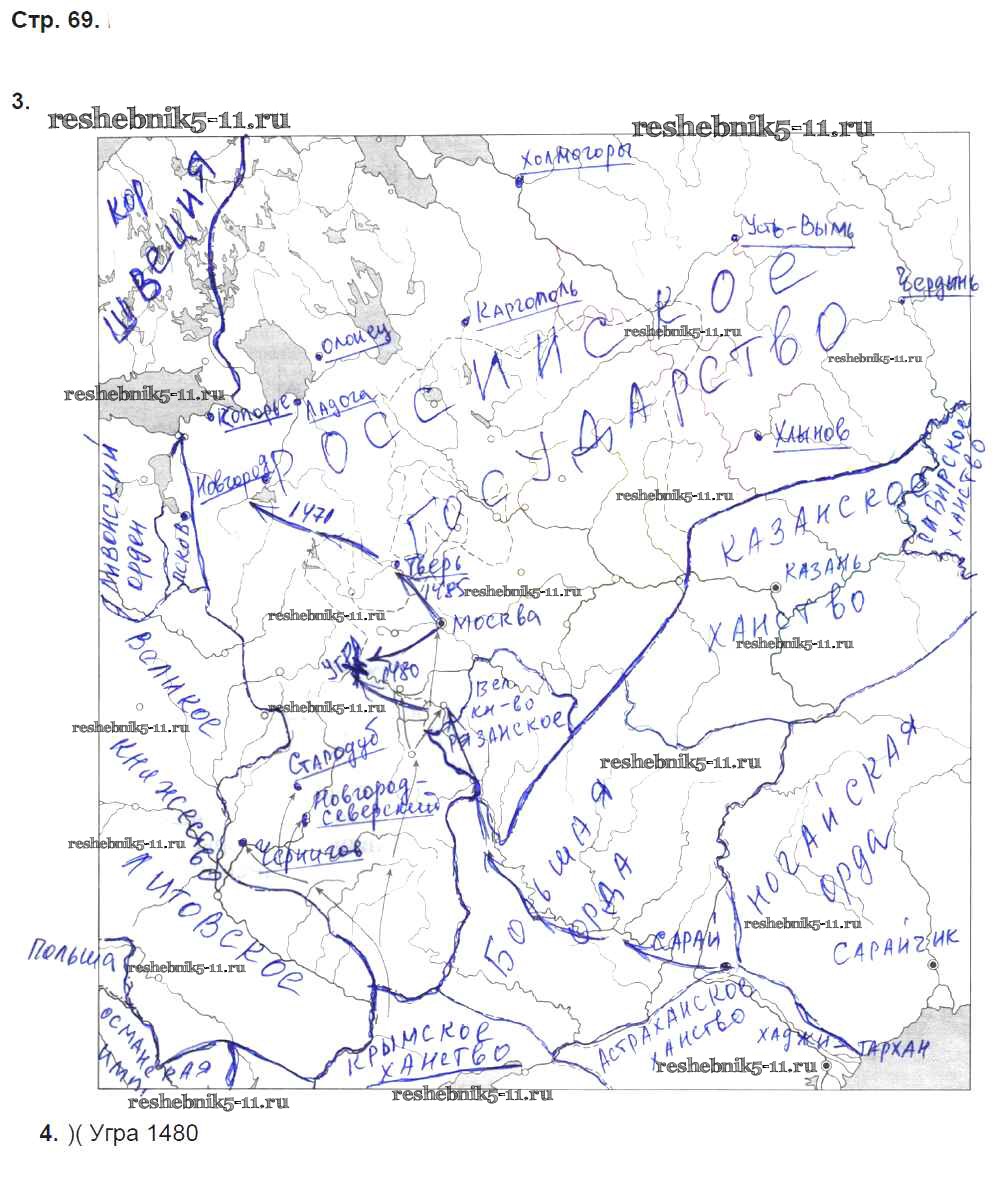 Стр. 69.
3.
reshebnik5-11.ru
reshebnik5-11.ru
Холмогоры
КОР
ШВЕЦИЯ
Усть-Вымь
Чердынь
Каргополь
reshebnik5-11.ru
Олонец
reshebnik5-11.ru
reshebnik5-11.ru
Копорье
Ладога
РОССИЙСКОЕ
ГОСУДАРСТВО
Хлынов
Новгород
reshebnik5-11.ru
1471
Псков
ЛИВОНСКИЙ
ОРДЕН
СИБИРСКОЕ
ХАНСТВО
КАЗАНСКОЕ
ХАНСТВО
КАЗАНЬ
Тверь
1485
reshebnik5-11.ru
reshebnik5-11.ru
МОСКВА
reshebnik5-11.ru
Угра
1480
Вел.
кн-во
РЯЗАНСКОЕ
reshebnik5-11.ru
reshebnik5-11.ru
Стародуб
reshebnik5-11.ru
Новгород-
Северский
ВЕЛИКОЕ
КНЯЖЕСТВО
ЛИТОВСКОЕ
reshebnik5-11.ru
Чернигов
БОЛЬШАЯ
ОРДА
НОГАЙСКАЯ
ОРДА
reshebnik5-11.ru
САРАЙ
САРАЙЧИК
ПОЛЬША
reshebnik5-11.ru
ОСМАНСКАЯ
ИМП.
КРЫМСКОЕ
ХАНСТВО
АСТРАХАНСКОЕ
ХАНСТВО
ХАДЖИ-ТАРХАН
reshebnik5-11.ru
reshebnik5-11.ru
reshebnik5-11.ru
4. )( Угра 1480